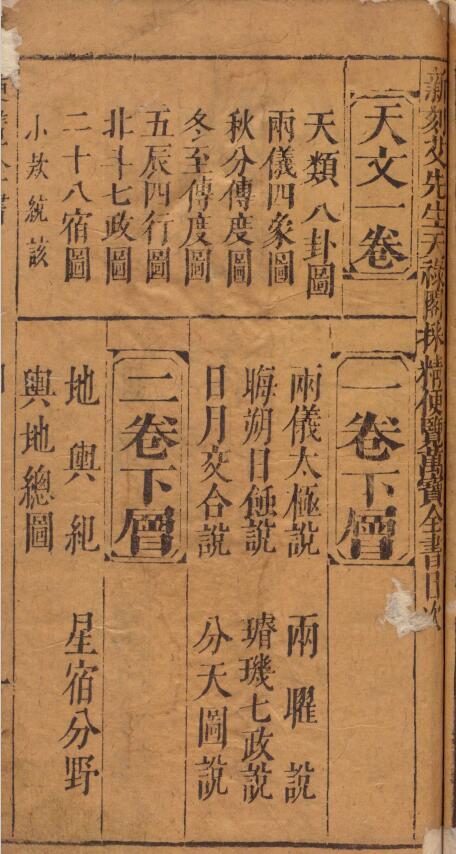 新刻艾先生天祿閣採精便覽萬寶全書目次
天文一卷
天類 八卦圖
兩儀四象圖
秋分傳度圖
冬至傳度圖
五辰四行圖
北斗七政圖
二十八宿圖
小欵統該
一卷下層
兩儀太極說 兩曜說
晦朔日蝕說 璿璣七政說
日月交合說 分天圖說
二卷下層
地輿紀 星宿分野
輿地總圖